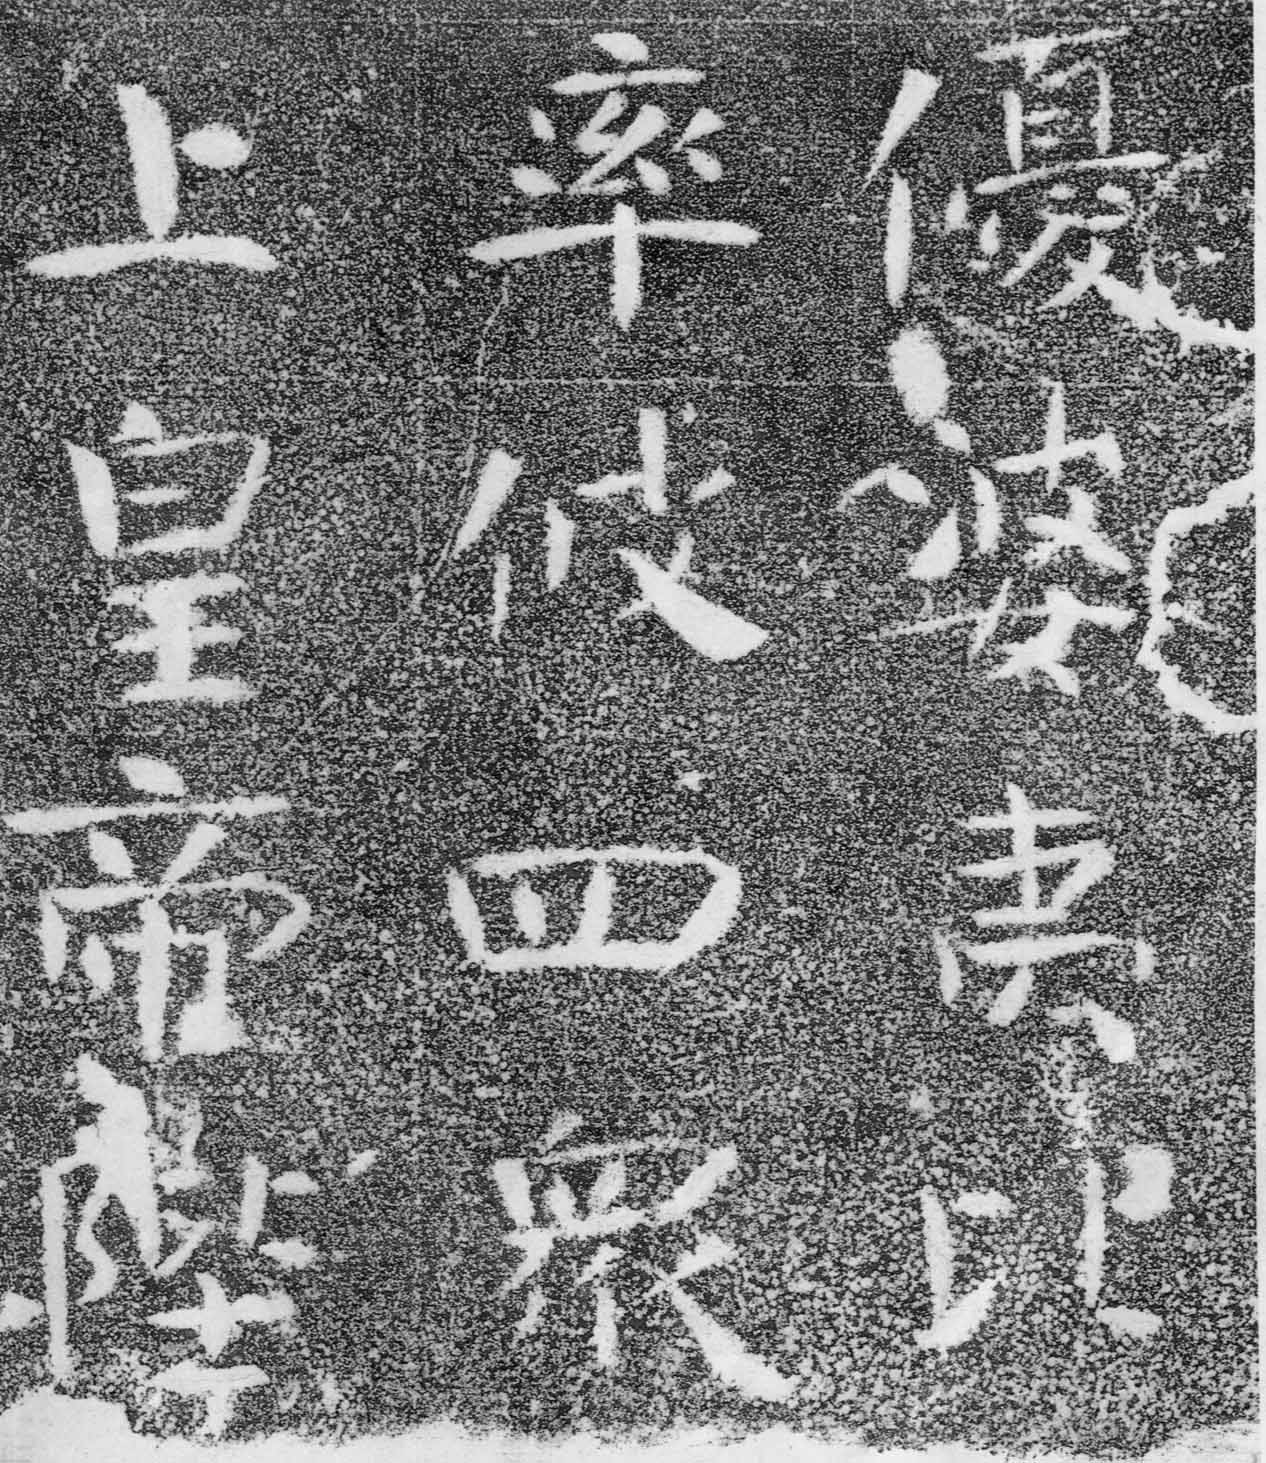 優婆夷以
率攸四衆
上皇帝陛